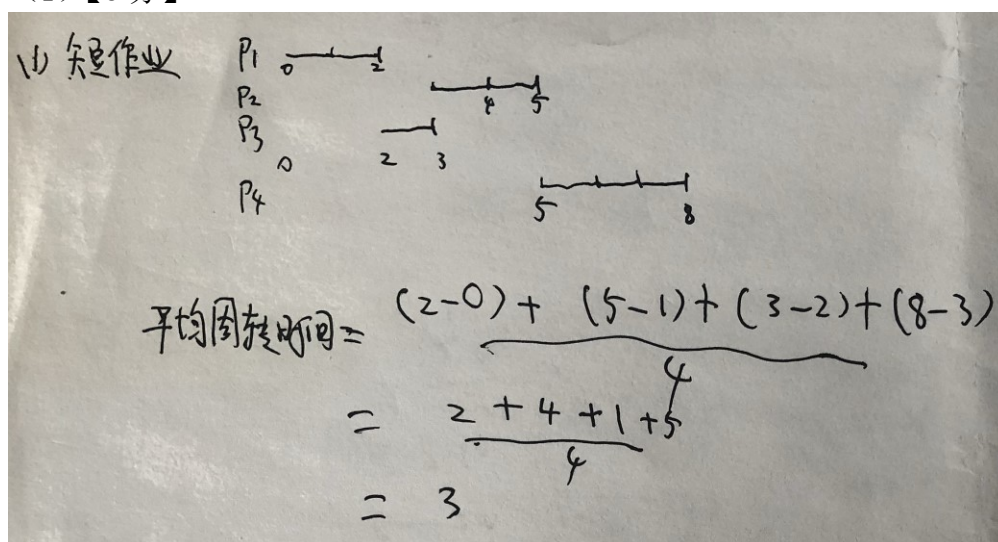 (1) 短作业
P1 0 2
P2 4 5
P3 2 3
0
P4 5 8
平均周转时间 = (2-0) + (5-1) + (3-2) + (8-3)
4
= 2 + 4 + 1 + 5
4
= 3